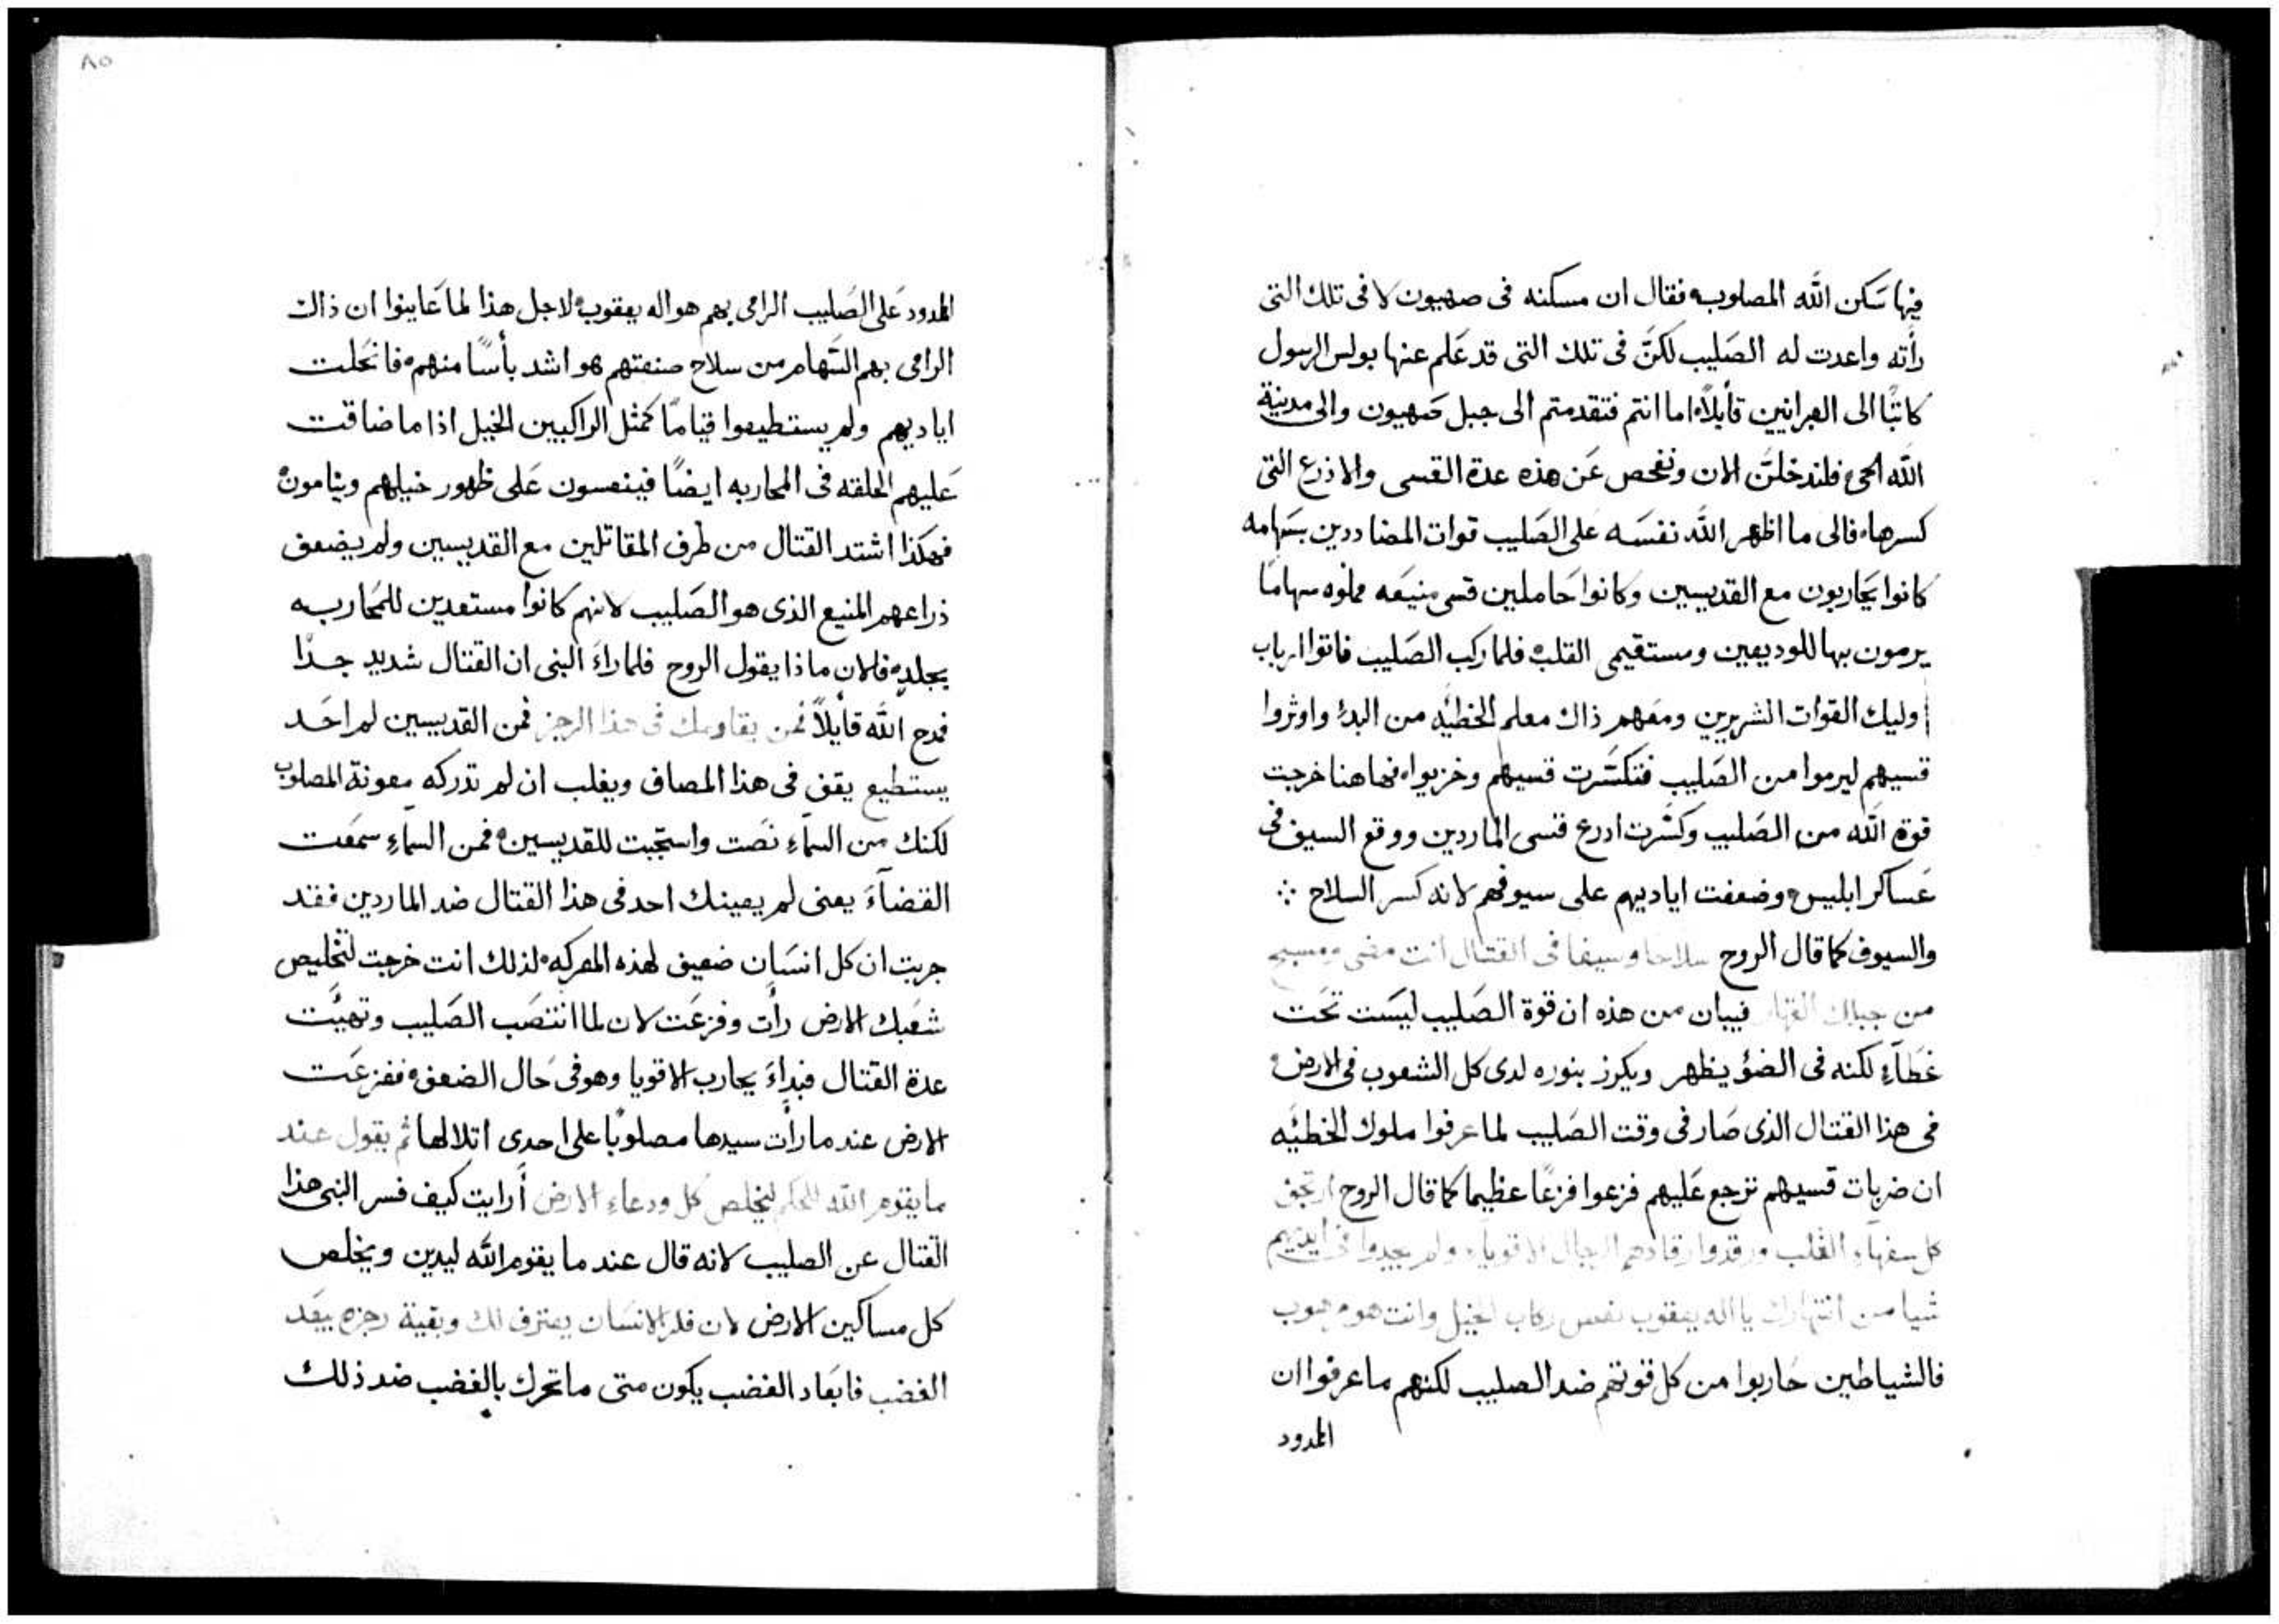 فيها سَكن الله المصلوب؟ فقال ان مسكنه فى صهيون لا فى تلك التى
رأته واعدت له الصَليب لكنَّ فى تلك التى قد عَلم عنها بولس الرسول
كاتبًا الى العبرانيين قأيلاً اما انتم فتقدمتم الى جبل صَهيون والى مدينة
الله الحى فلندخلنَّ الان ونفحص عَن هذه عدة القسى والاذرع التى
كسرها، فالى ما اظهر الله نفسَه على الصَليب قوات المضاددين بسَهامه
كانوا يَحاربون مع القديسين وكانوا حَاملين قسى منيعَه مملوه سهامًا
يرمون بها للوديعين ومستقيمى القلب فلما ركب الصَليب فاتوا ارباب
اوليك القوات الشريرين ومعَهم ذاك معلم الخطيَّه من البدء واوثروا
قسيهم ليرموا من الصَليب فتنكسَّرت قسيهم وخزيوا، فها هنا خرجت
قوة الله من الصَليب وكسَّرت ادرع قسى الماردين ووقع السيف فى
عَساكر ابليس وضعفت اياديهم على سيوفهم لانه كسر السلاح ⁘
والسيوف كما قال الروح سلاحا وسيفا فى القتال انت مضى ومسبح
من جبالك القهار فيبان من هذه ان قوة الصَليب ليسَت تحَت
غَطآءٍ لكنه فى الضؤ يظهر ويكرز بنوره لدى كل الشعوب فى الارض
فى هذا القتال الذى صَار فى وقت الصَليب لما عرفوا ملوك الخطيَّه
ان ضربات قسيهم ترجع عَليهم فزعوا فزعًا عظيما كما قال الروح ارتجف
كل سفهاء القلب ورقدوا رقادهم الرجال الاقوياء ولم يجدوا فى ايديهم
شيا من انتهارك يا اله يعقوب نعس ركاب الخيل وانت هو مرهوب
فالشياطين حَاربوا من كل قوتهم ضد الصليب لكنهم ما عرفوا ان
المدود
٨٥
المدود عَلى الصَليب الرامى بهم هو اله يعقوب لاجل هذا لما عَاينوا ان ذاك
الرامى بهم السَّهام من سلاح صنعتهم هو اشد بأسًا منهم، فانحَلت
اياديهم ولم يستطيعوا قيامًا كمثل الراكبين الخيل اذا ما ضاقت
عَليهم الحلقه فى المحاربه ايضًا فينعسون عَلى ظهور خيلهم وينامون
فهكذا اشتد القتال من طرف المقاتلين مع القديسين ولم يضعف
ذراعهم المنيع الذى هو الصَليب لانهم كانوا مستعدين للمُحاربه
بجلدٍ فالان ماذا يقول الروح فلما راءَ النبى ان القتال شديد جدًا
فمدح الله قأيلاً فمن يقاومك فى هذا الرجز فمن القديسين لم احَد
يستطيع يقف فى هذا المصاف ويغلب ان لم تدركه معونة المصلوب
لكنك من السمآءِ نصَت واستجَبت للقديسين، فمن السمآءِ سمعَت
القضآءَ يعنى لم يعينك احد فى هذا القتال ضد الماردين فقد
جربت ان كل انسَان ضعيف لهذه المعركه، لذلك انت خرجت لتخليص
شعَبك الارض رأت وفزعَت لان لما انتصَب الصَليب وتهيَّت
عدة القتال فبداءَ يحارب الاقويا وهو فى حَال الضعف، ففزعَت
الارض عند ما رأت سيدها مصلوبًا على احدى اتلالها ثم يقول عند
ما يقوم الله للحكم ليخلص كل ودعاءِ الارض أرايت كيف فسر النبى هذا
القتال عن الصليب لانه قال عند ما يقوم الله ليدين ويخلص
كل مساكين الارض لان فكر الانسَان يعترف لك وبقية رجزه يبعَد
الغضب فابعَاد الغضب يكون متى ما تحرك بالغضب ضد ذلك